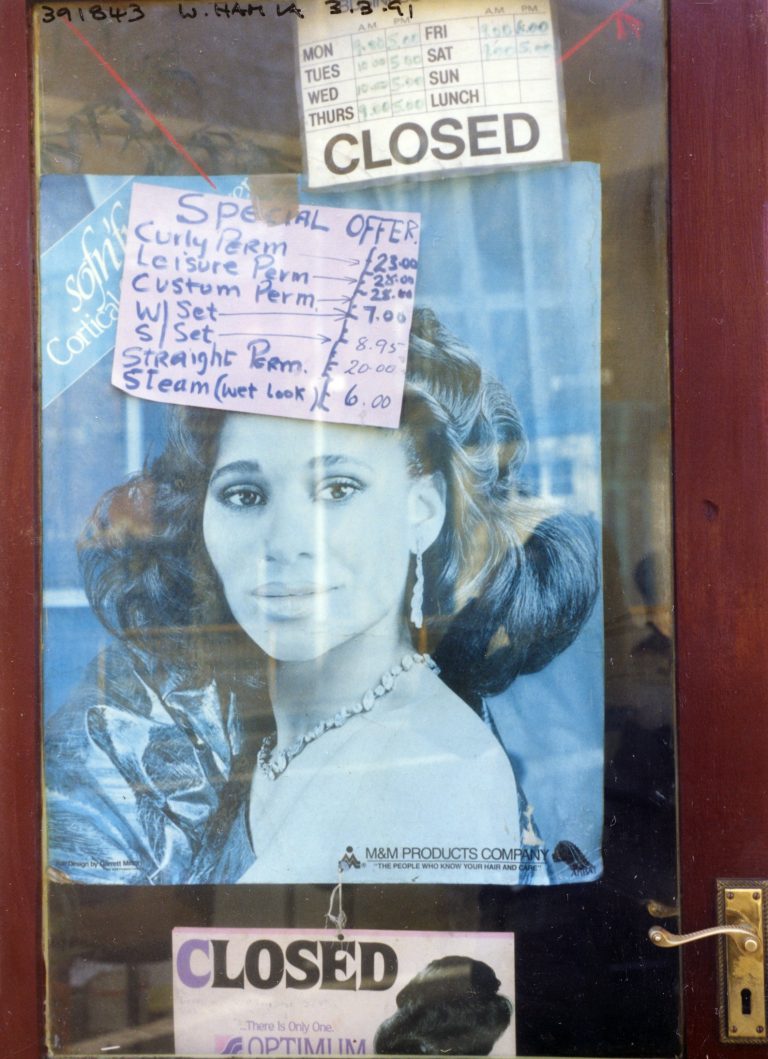 391843 W. HAM LA 3.3.91
A.M. P.M. A.M. P.M.
MON 9.00 5.00 FRI 9.00 6.00
TUES 10.00 5.00 SAT 5.00
WED 10.00 5.00 SUN
THURS 9.00 5.00 LUNCH
CLOSED
sofn'f
Cortical
SPECIAL OFFER
Curly PERM 23.00
Leisure Perm 28.00
Custom Perm. 28.00
W/ Set 7.00
S/ Set 8.95
STRAIGHT PERM. 20.00
STeam (wet look) £ 6.00
Design by Garrett
M&M PRODUCTS COMPANY
"THE PEOPLE WHO KNOW YOUR HAIR AND CARE"
CLOSED
...There Is Only One.
OPTIMUM